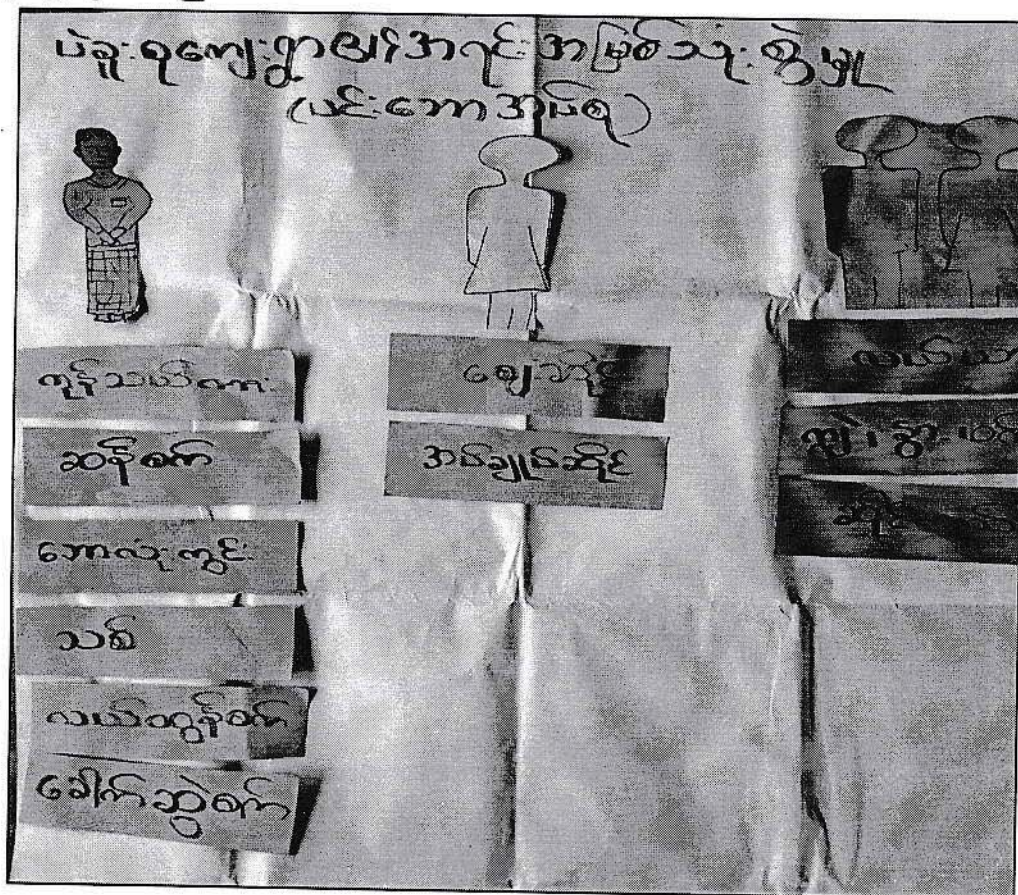 ပဲခူးစုကျေးရွာ၏အရင်းအမြစ်သုံးစွဲမှု
(ပင်းဘောအုပ်စု)
ကုန်သယ်ကား
ဆန်စက်
ဘောလုံးကွင်း
သစ်
လယ်ထွန်စက်
ခေါက်ဆွဲစက်
ဈေးဆိုင်
အပ်ချုပ်ဆိုင်
လယ်ယာ
ကျွဲ၊ နွား၊ ဝက်